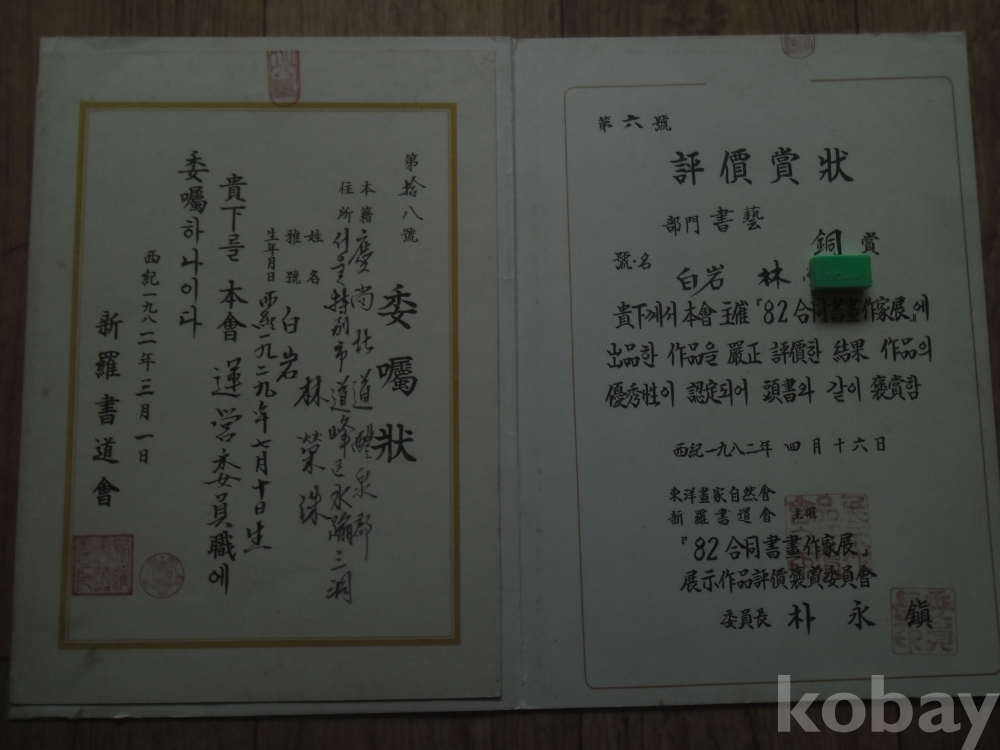 第拾八號
委囑狀
本籍 慶尚北道醴泉郡
住所 서울特別市 道峰区 水踰三洞
姓名 林榮洙
雅號 白岩
生年月日 西紀一九二九年七月十日生
貴下를 本會 運営委員職에
委囑하나이다
西紀一九八二年三月一日
新羅書道會
第六號
評價賞狀
部門 書藝
銅賞
號·名 白岩 林
貴下께서 本會 主催『82合同書畫作家展』에
出品한 作品을 嚴正 評價한 結果 作品의
優秀性이 認定되어 頭書와 같이 褒賞함
西紀一九八二年 四月十六日
東洋畫家自然會
新羅書道會 主催
『82合同書畫作家展』
展示作品評價褒賞委員會
委員長 朴永鎭
kobay